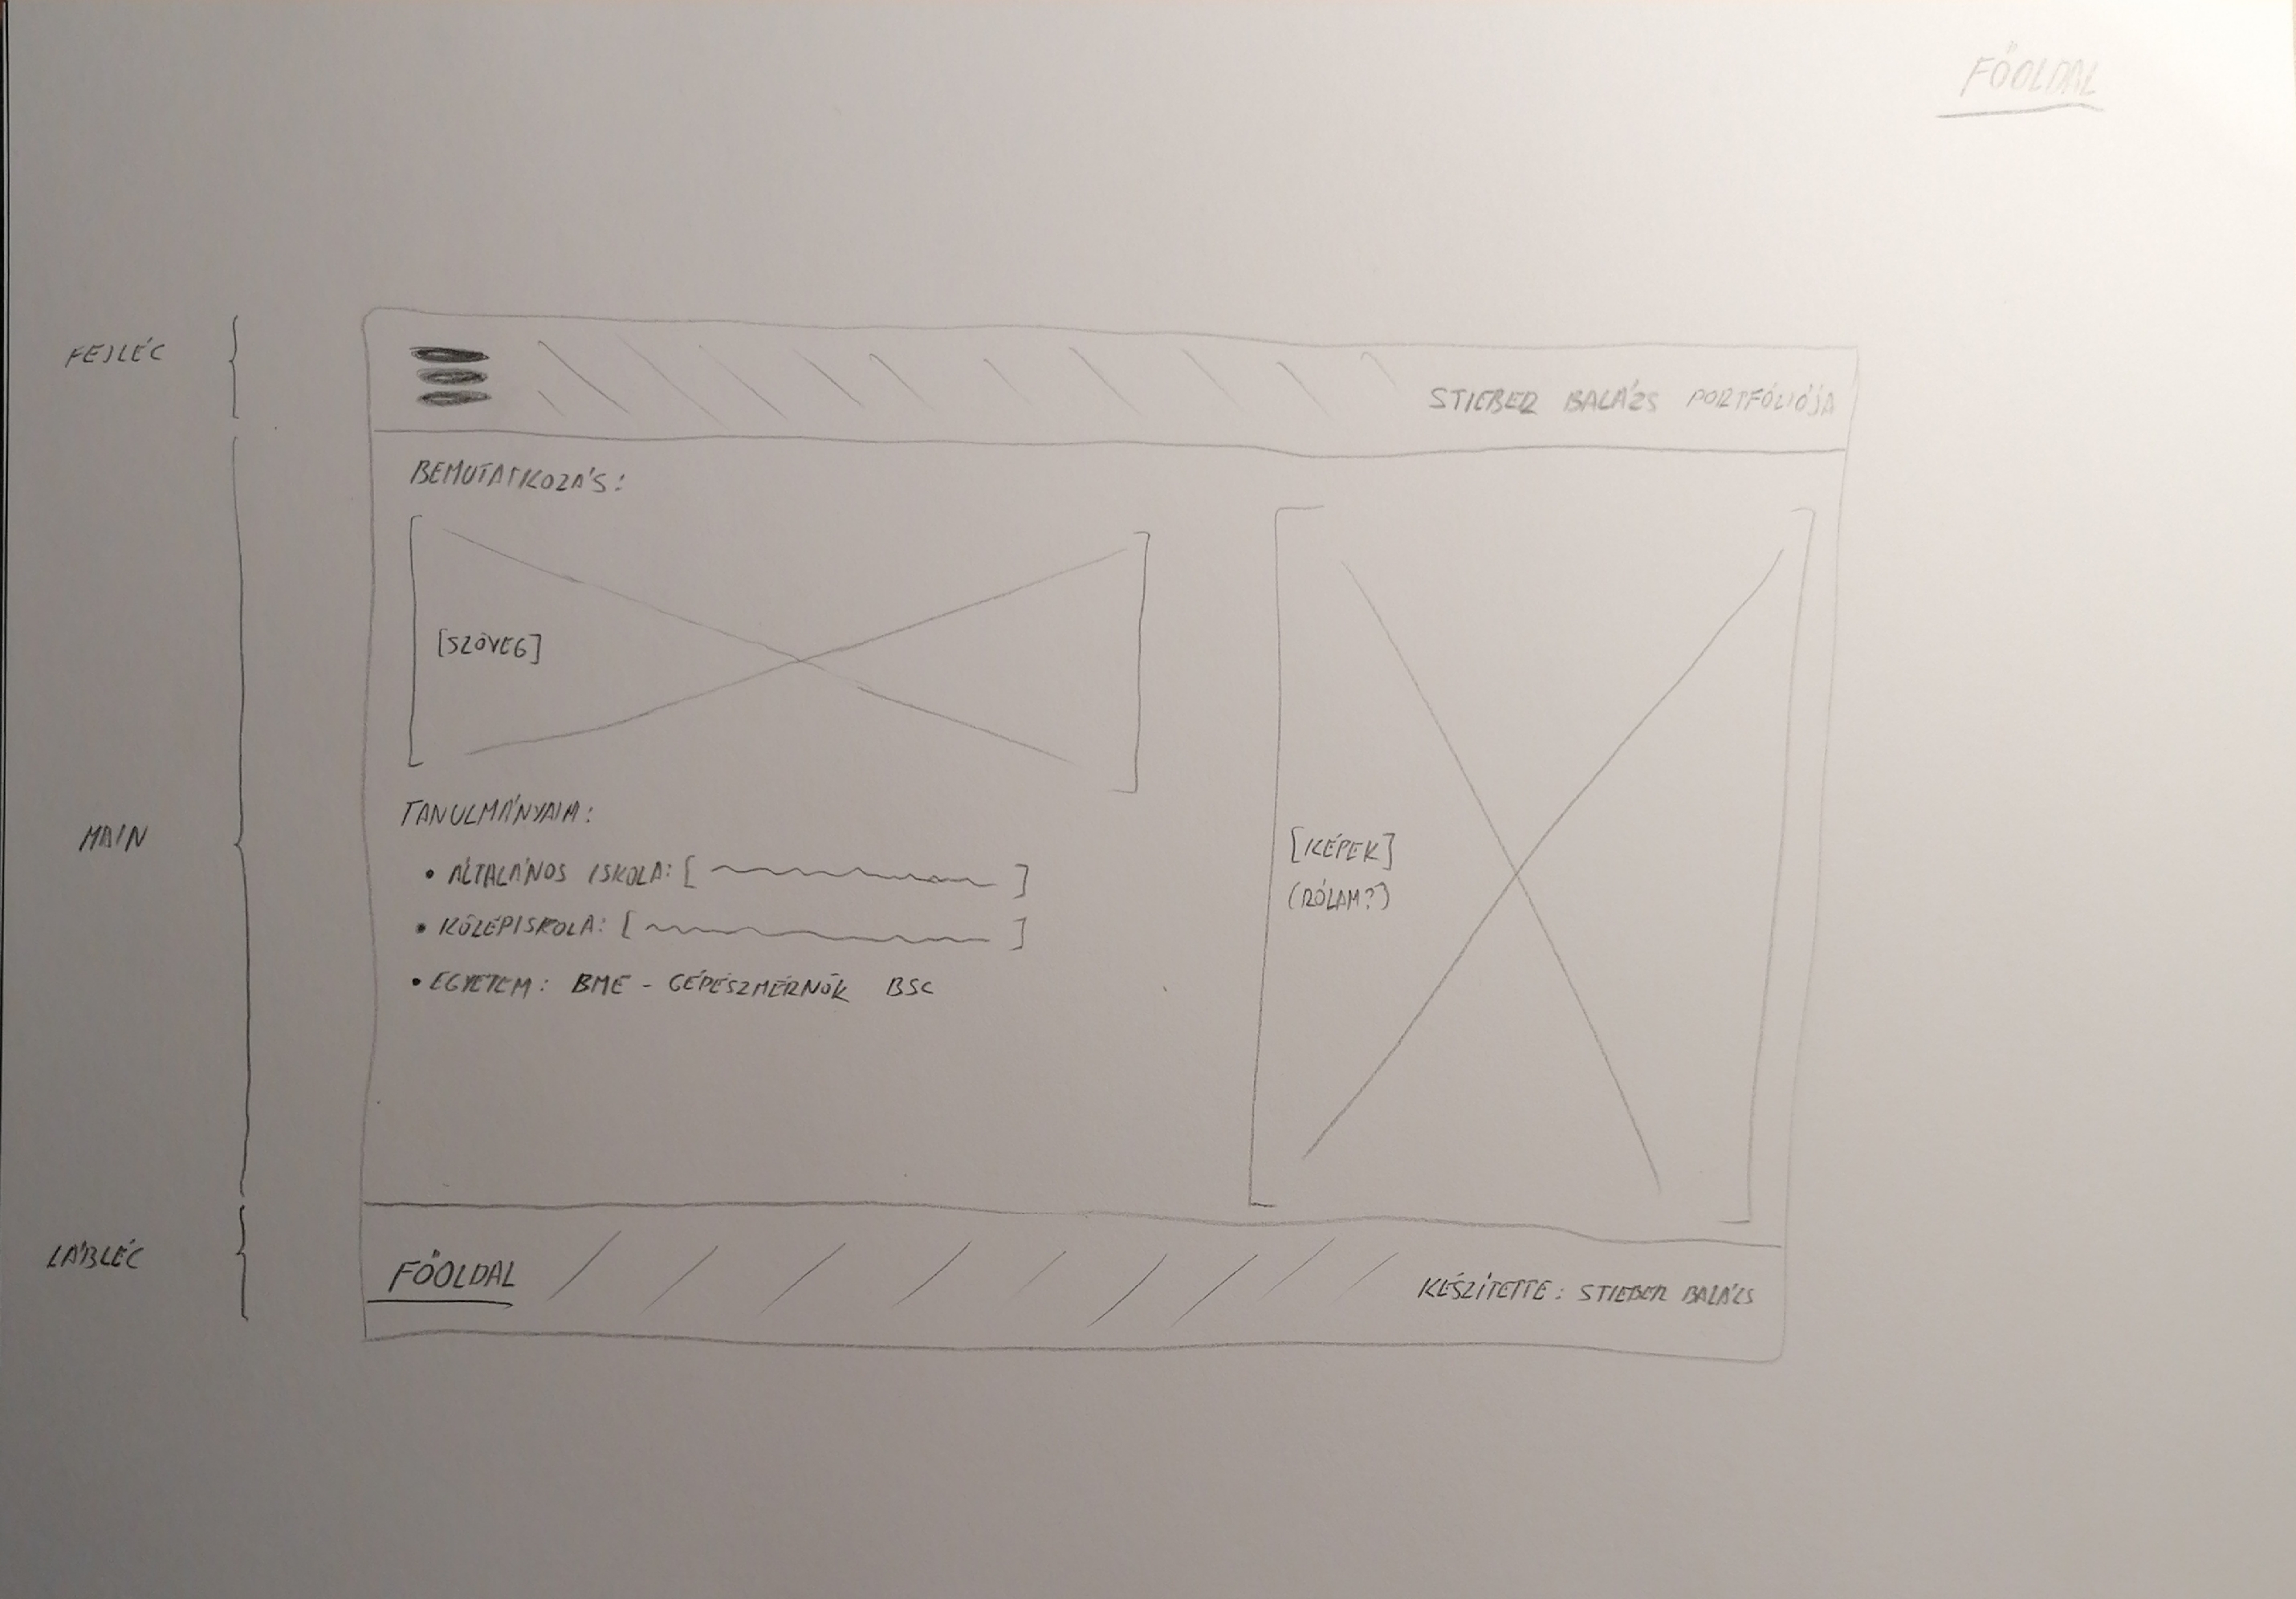 FŐOLDAL
FEJLÉC
STIEBER BALÁZS PORTFÓLIÓJA
BEMUTATKOZÁS:
[SZÖVEG]
TANULMÁNYAIM:
MAIN
• ÁLTALÁNOS ISKOLA: [ ]
• KÖZÉPISKOLA: [ ]
• EGYETEM: BME - GÉPÉSZMÉRNÖK BSC
[KÉPEK]
(RÓLAM?)
LÁBLÉC
FŐOLDAL
KÉSZÍTETTE: STIEBER BALÁZS